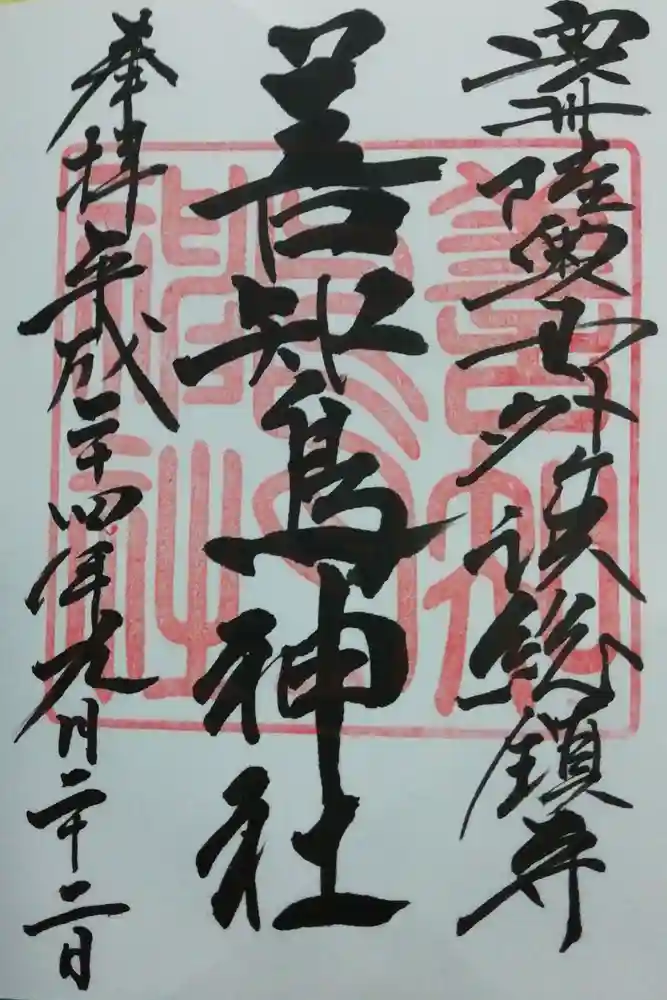 奥州陸奥 外 総鎮守
善知鳥神社
奉拝 平成二十四年九月二十二日